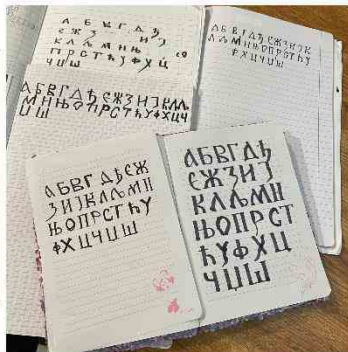 А Б В Г Д Ђ
Е Ж З И Ј
К Л Љ М Н Њ О
П Р С Т Ћ У Ф Х Ц
Ч Џ Ш
АБВГДЂЕЖЗИЈКЛЉ
МНЊОПРСТЋУФХЦЧ
ЏШ
АБВГДЂЕЖЗИЈК
ЛЉМНЊОПРСТЋУ
ФХЦЧЏШ
АБВГДЂЕЖ
ЗИЈКЛЉМН
ЊОПРСТЋУ
ФХЦЧЏШ
АБВГДЂ
ЕЖЗИЈ
КЛЉМН
ЊОПРСТ
ЋУФХЦ
ЧЏШ